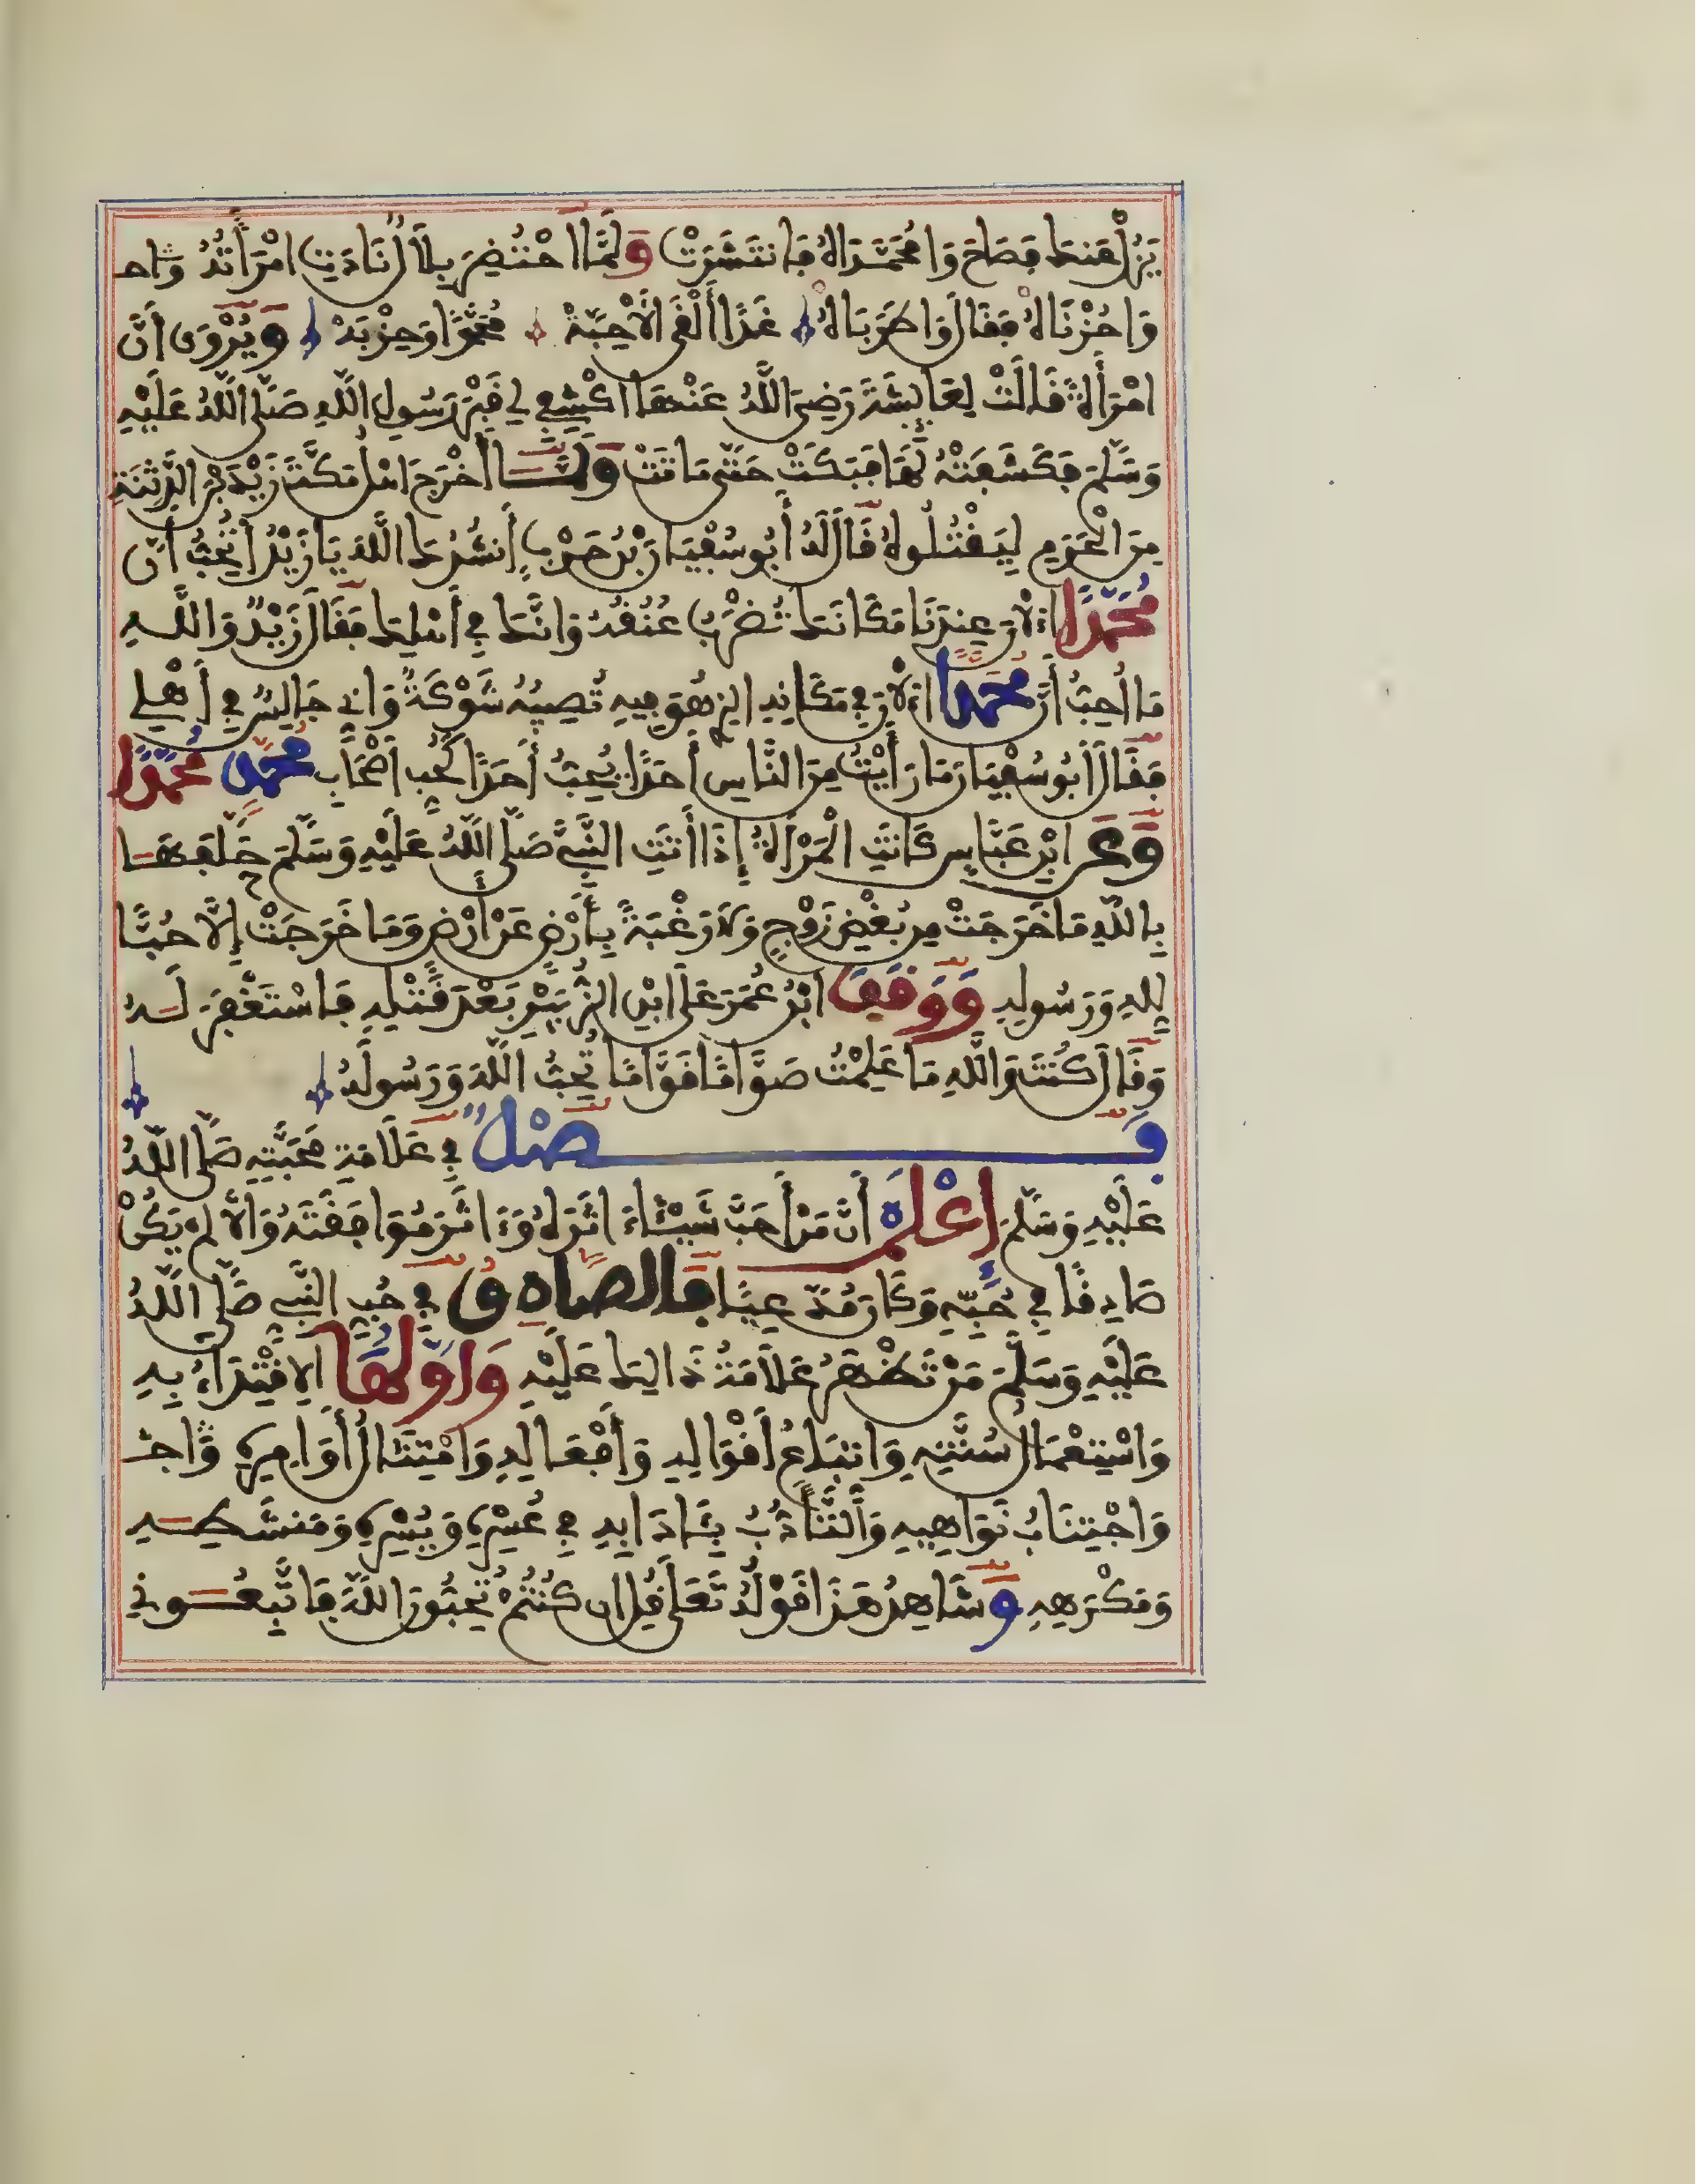 يَزُلْ عَنكَ فَصَاحَ وَا مُحَمَّدَاهُ فَانتَشَرَتْ وَلَمَّا احْتُضِرَ بِلَالٌ نَادَتِ امْرَأَتُهُ وَاحـ
وَاحُزْنَاهْ فَقَالَ وَاطَرَبَاهْ غَدًا أَلْقَى الْأَحِبَّهْ مُحَمَّدًا وَحِزْبَهْ وَيُرْوَى أَنَّ
امْرَأَةً قَالَتْ لِعَائِشَةَ رَضِيَ اللَّهُ عَنْهَا اكْشِفِي لِي قَبْرَ رَسُولِ اللَّهِ صَلَّى اللَّهُ عَلَيْهِ
وَسَلَّمَ فَكَشَفَتْهُ لَهَا فَبَكَتْ حَتَّى مَاتَتْ وَلَمَّا أَخْرَجَ اهْلُ مَكَّةَ زَيْدَ بْنَ الدَّثِنَةِ
مِنَ الْحَرَمِ لِيَقْتُلُوهُ قَالَ لَهُ أَبُو سُفْيَانَ بْنُ حَرْبٍ أَنشُدُكَ اللَّهَ يَا زَيْدُ أَتُحِبُّ أَنَّ
مُحَمَّدًا الْآنَ عِنْدَنَا مَكَانَكَ تُضْرَبُ عُنُقُهُ وَانَّكَ فِي أَهْلِكَ فَقَالَ زَيْدٌ وَاللَّهِ
مَا أُحِبُّ أَنَّ مُحَمَّدًا الْآنَ فِي مَكَانِهِ الذِي هُوَ فِيهِ تُصِيبُهُ شَوْكَةٌ وَانِّي جَالِسٌ فِي أَهْلِي
فَقَالَ أَبُو سُفْيَانَ مَا رَأَيْتُ مِنَ النَّاسِ أَحَدًا يُحِبُّ أَحَدًا كَحُبِّ أَصْحَابِ مُحَمَّدٍ مُحَمَّدًا
وَعَنِ ابْنِ عَبَّاسٍ كَانَتِ الْمَرْأَةُ إِذَا أَتَتِ النَّبِيَّ صَلَّى اللَّهُ عَلَيْهِ وَسَلَّمَ حَلَّفَهَا
بِاللَّهِ مَا خَرَجَتْ مِن بُغْضِ زَوْجٍ وَلَا رَغْبَةً بِأَرْضٍ عَنْ أَرْضٍ وَمَا خَرَجَتْ إِلَّا حُبًّا
لِلهِ وَرَسُولِهِ وَوَقَفَ ابْنُ عُمَرَ عَلَى ابْنِ الزُّبَيْرِ بَعْدَ قَتْلِهِ فَاسْتَغْفَرَ لَهُ
وَقَالَ كُنتَ وَاللَّهِ مَا عَلِمْتُ صَوَّامًا قَوَّامًا تُحِبُّ اللَّهَ وَرَسُولَهُ
فَصْلٌ فِي عَلَامَةِ مَحَبَّتِهِ صَلَّى اللَّهُ
عَلَيْهِ وَسَلَّمَ إِعْلَمَ أَنَّ مَنْ أَحَبَّ شَيْئًا اثَرَهُ وَءَاثَرَ مُوَافَقَتَهُ وَالَّا لَمْ يَكُنْ
صَادِقًا فِي حُبِّهِ وَكَانَ مُدَّعِيًا فَالصَّادِقُ فِي حُبِّ النَّبِيِّ صَلَّى اللَّهُ
عَلَيْهِ وَسَلَّمَ مَنْ تَظْهَرُ عَلَامَةُ ذَالِكَ عَلَيْهِ وَاوَّلُهَا الِاقْتِدَاءُ بِهِ
وَاسْتِعْمَالُ سُنَّتِهِ وَاتِّبَاعُ أَقْوَالِهِ وَأَفْعَالِهِ وَامْتِثَالُ أَوَامِرِهِ وَاجْـ
وَاجْتِنَابُ نَوَاهِيهِ وَالتَّأَدُّبُ بِـَٔادَابِهِ فِي عُسْرِهِ وَيُسْرِهِ وَمَنشَطِهِ
وَمَكْرَهِهِ وَشَاهِدُ هَذَا قَوْلُهُ تَعَلَى قُلِ ان كُنتُمْ تُحِبُّونَ اللَّهَ فَاتَّبِعُونِي